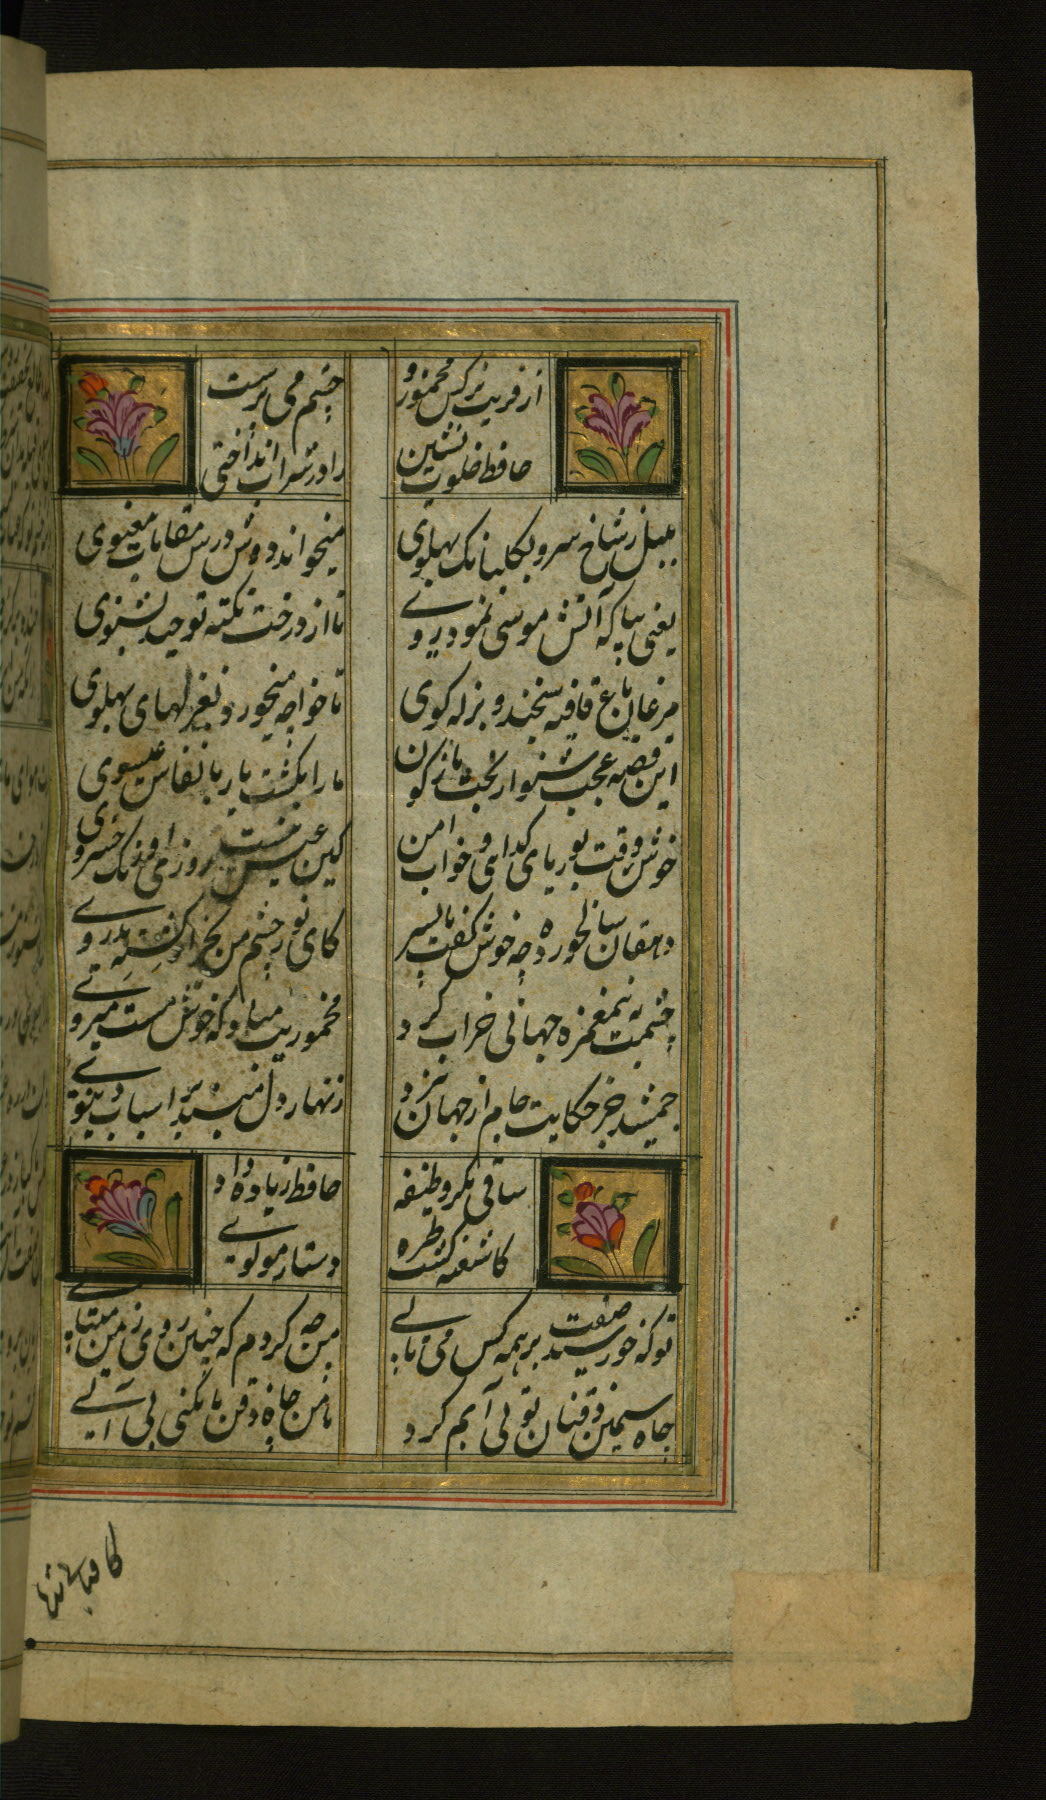 از فریب نرکس مخمور و
چشم می پرست
حافظ خلوت نشین
را در شراب انداختی
بلبل ز شاخ سرو بکلبانک پهلوی
میخواند دوش درس مقامات معنوی
یعنی بیا که آتش موسی نمود روی
تا از درخت نکته توحید بشنوی
مرغان باغ قافیه سنجند و بزله کوی
تا خواجه میخورد بغزلهای پهلوی
این قصه عجب شنو از بخت باژکون
ما را بکشت یار بانفاس عیسوی
خوش وقت بوریای کدایی و خواب امن
کین عیش نیست روزی اورنک خسروی
دهقان سالخورده چه خوش کفت با پسر
کای نور چشم من بجز از کشته ندروی
چشمت به نیم غمزه جهانی خراب کرد
مخموریت مباد که خوش مست میروی
جمشید جز حکایت جام از جهان نبرد
زنهار دل مبند بر اسباب دنیوی
ساقی مکر وظیفه
حافظ زیاده داد
کاشفته کشت طره
دستار مولوی
تو که خورشید صفت بر همه کس می تابی
من چه کردم که چنین روی ز من میتابی
چاه سیمین ذقنان تو بی آبم کرد
با من چاه ذقن تا نکنی بی آبی